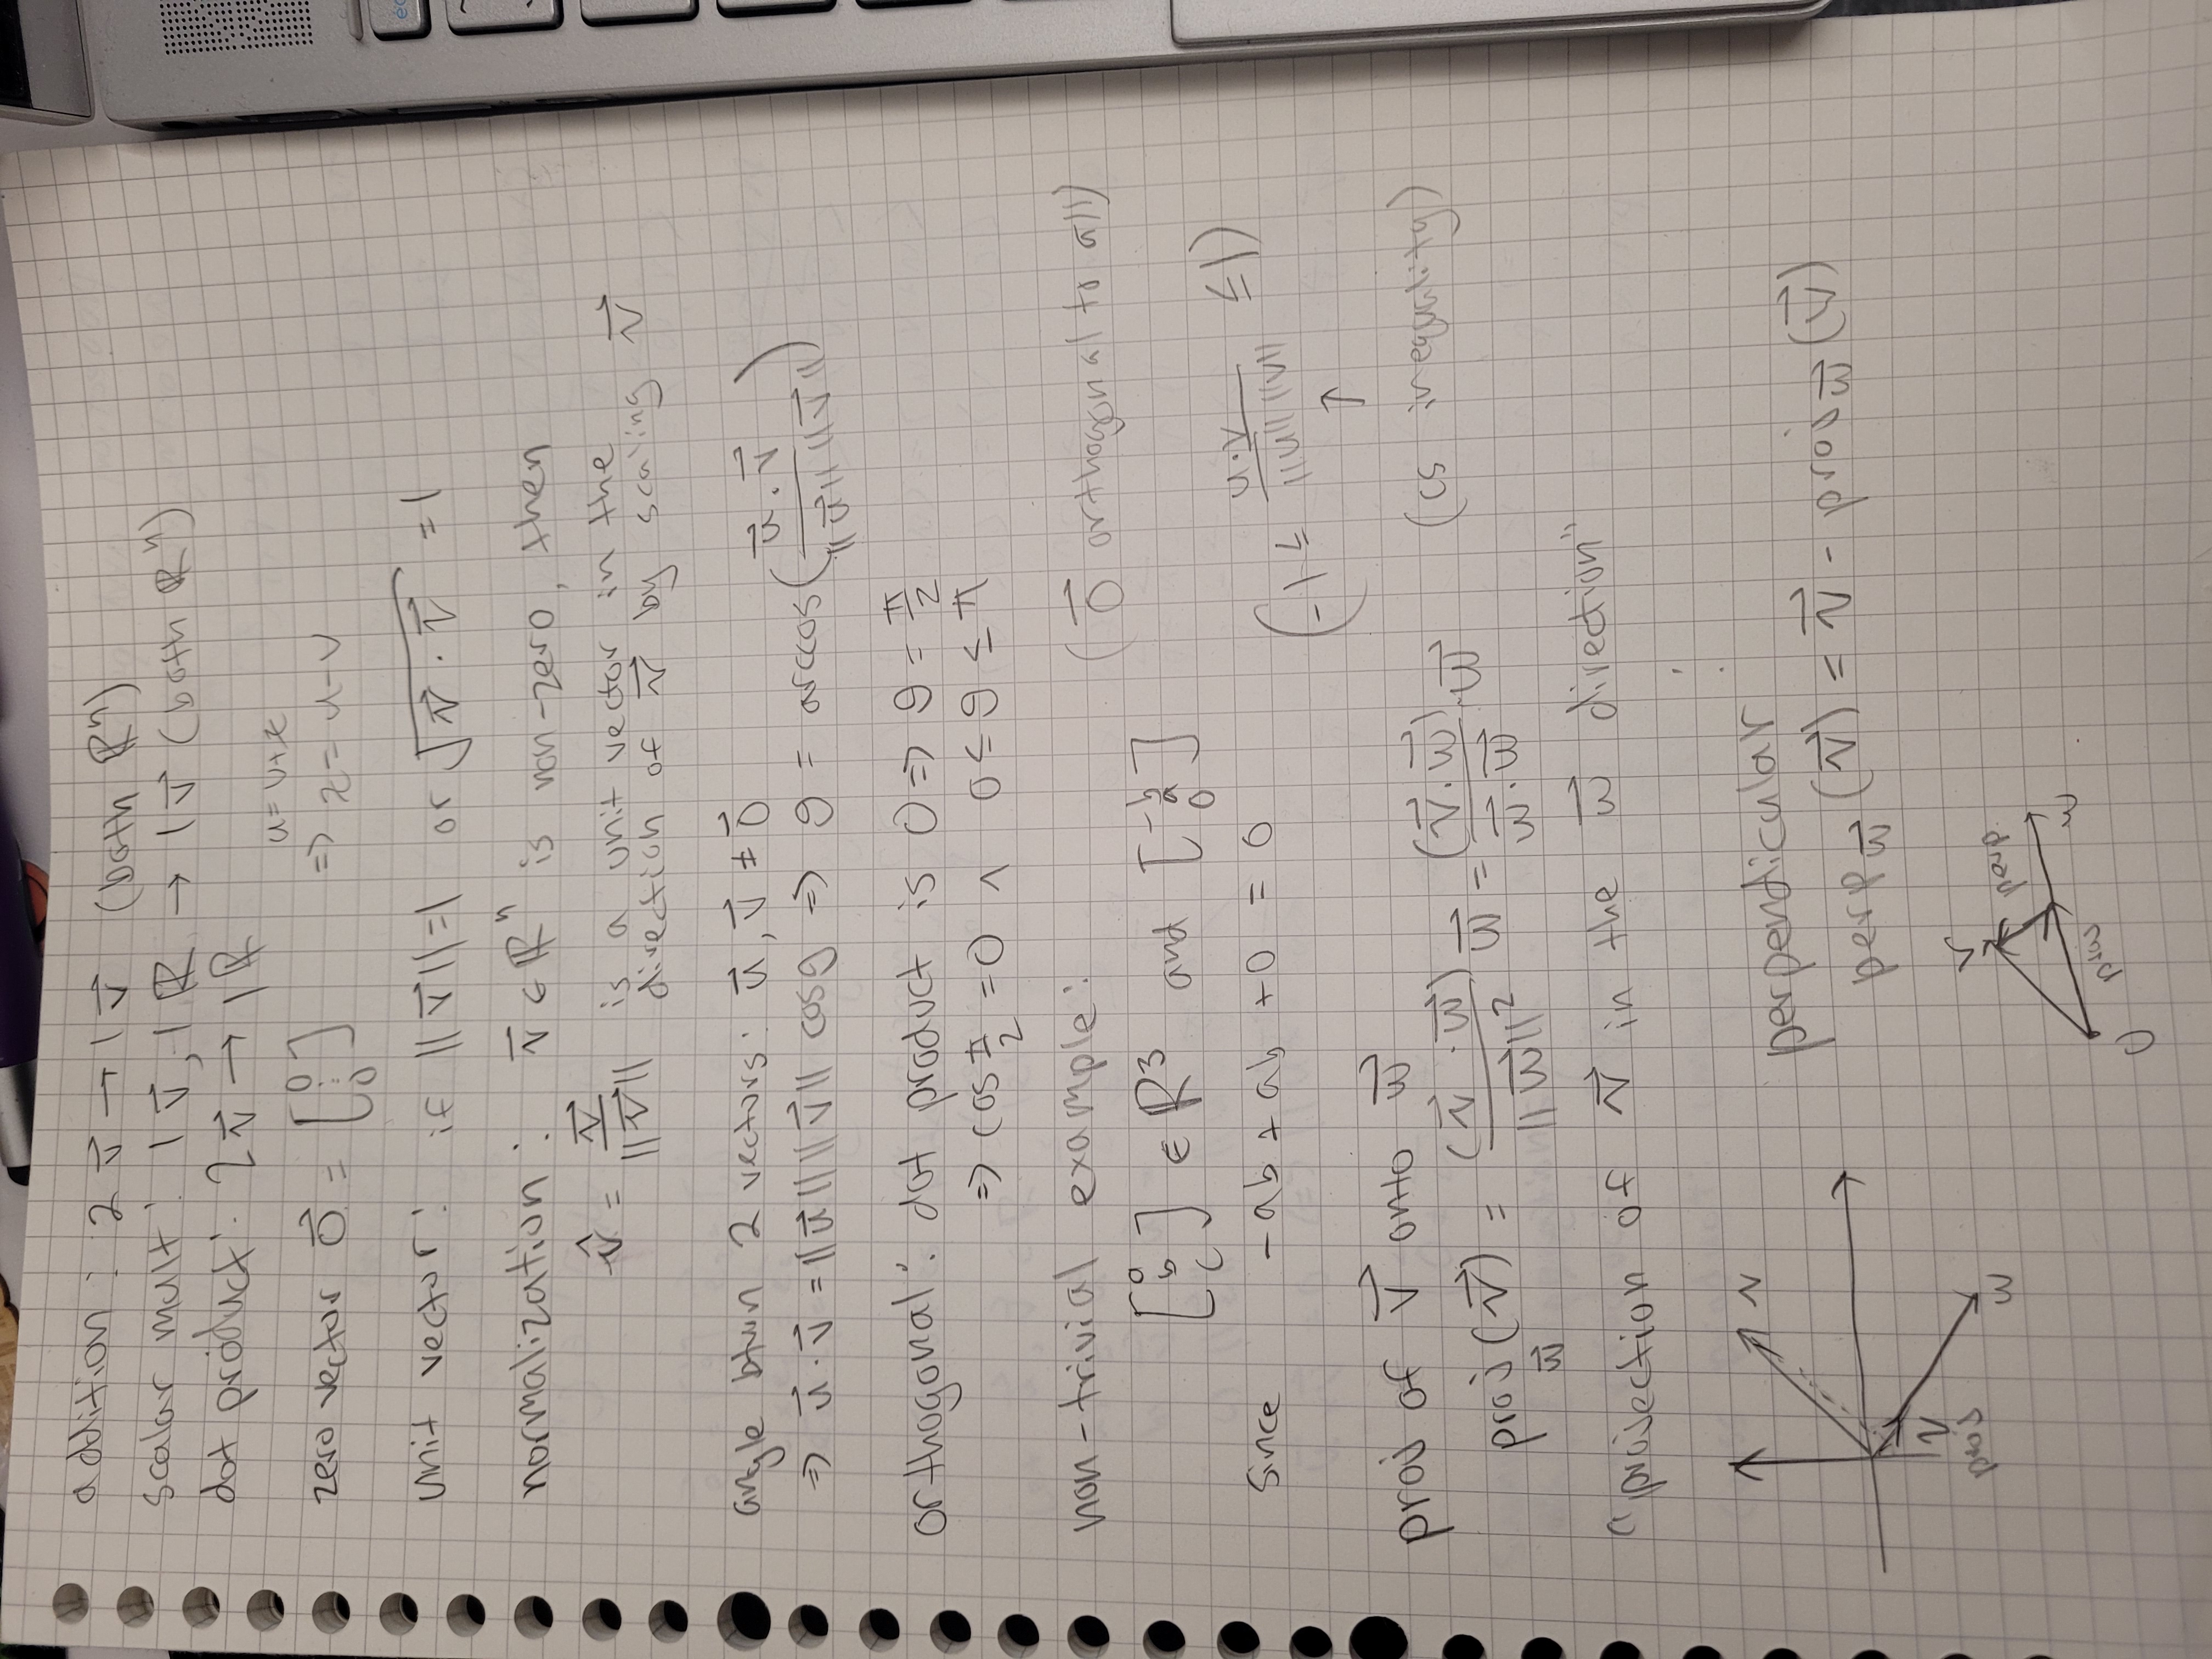 addition: 2 v⃗ → 1 v⃗ (both ℝⁿ)
scalar mult: 1 v⃗, 1 ℝ → 1 v⃗ (both ℝⁿ)
dot product: 2 v⃗ → 1 ℝ
u = v + z
zero vector 0⃗ = [0 ⋮ 0] ⇒ z = u - v
unit vector: if ||v⃗|| = 1 or √(v⃗ · v⃗) = 1
normalization: v⃗ ∈ ℝⁿ is non-zero, then
v̂ = v⃗ / ||v⃗|| is a unit vector in the
direction of v⃗ by scaling v⃗
angle btwn 2 vectors: u⃗, v⃗ ≠ 0⃗
⇒ u⃗ · v⃗ = ||u⃗|| ||v⃗|| cos θ ⇒ θ = arccos(u⃗ · v⃗ / ||u⃗|| ||v⃗||)
orthogonal: dot product is 0 ⇒ θ = π/2
⇒ cos π/2 = 0 ∧ 0 ≤ θ ≤ π
non-trivial example: (0⃗ orthogonal to all)
[a b c] ∈ ℝ³ and [-b a 0]
since -ab + ab + 0 = 0
(-1 ≤ u·v / ||u|| ||v|| ≤ 1)
↑
(cs inequality)
proj of v⃗ onto w⃗
proj_w⃗ (v⃗) = (v⃗ · w⃗) / ||w⃗||² w⃗ = (v⃗ · w⃗) / w⃗ · w⃗ · w⃗
"projection of v⃗ in the w⃗ direction"
v
proj
w
perpendicular
perp_w⃗ (v⃗) = v⃗ - proj_w⃗ (v⃗)
v
perp
w
proj
0